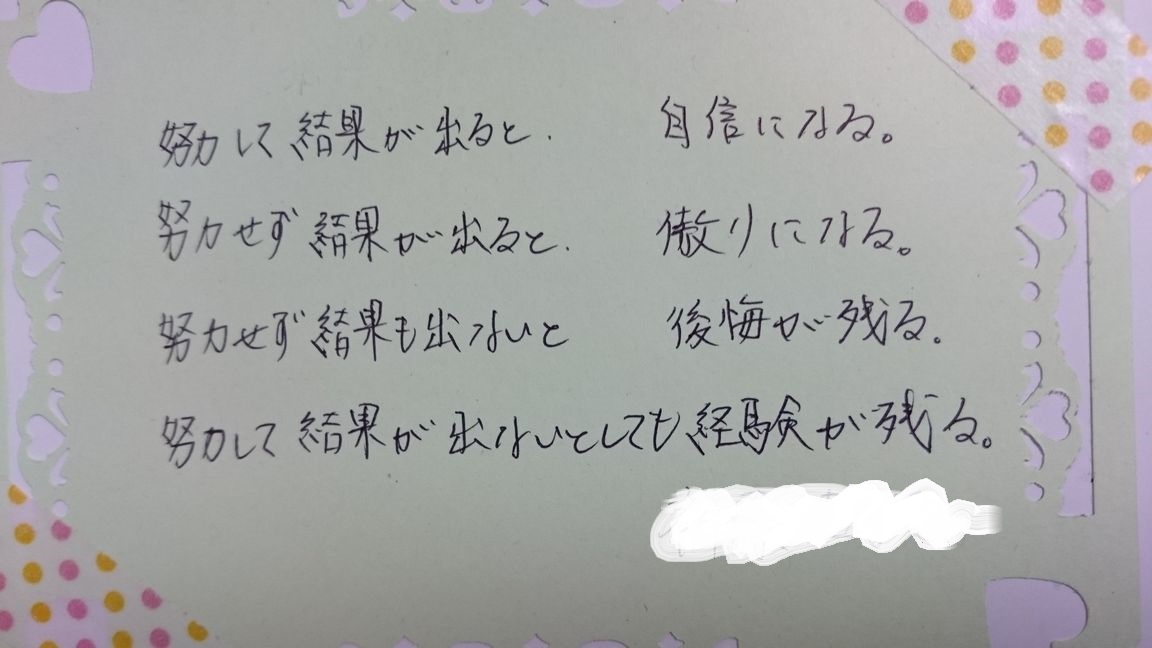 努力して結果が出ると、 自信になる。
努力せず結果が出ると、 傲りになる。
努力せず結果も出ないと 後悔が残る。
努力して結果が出ないとしても、経験が残る。